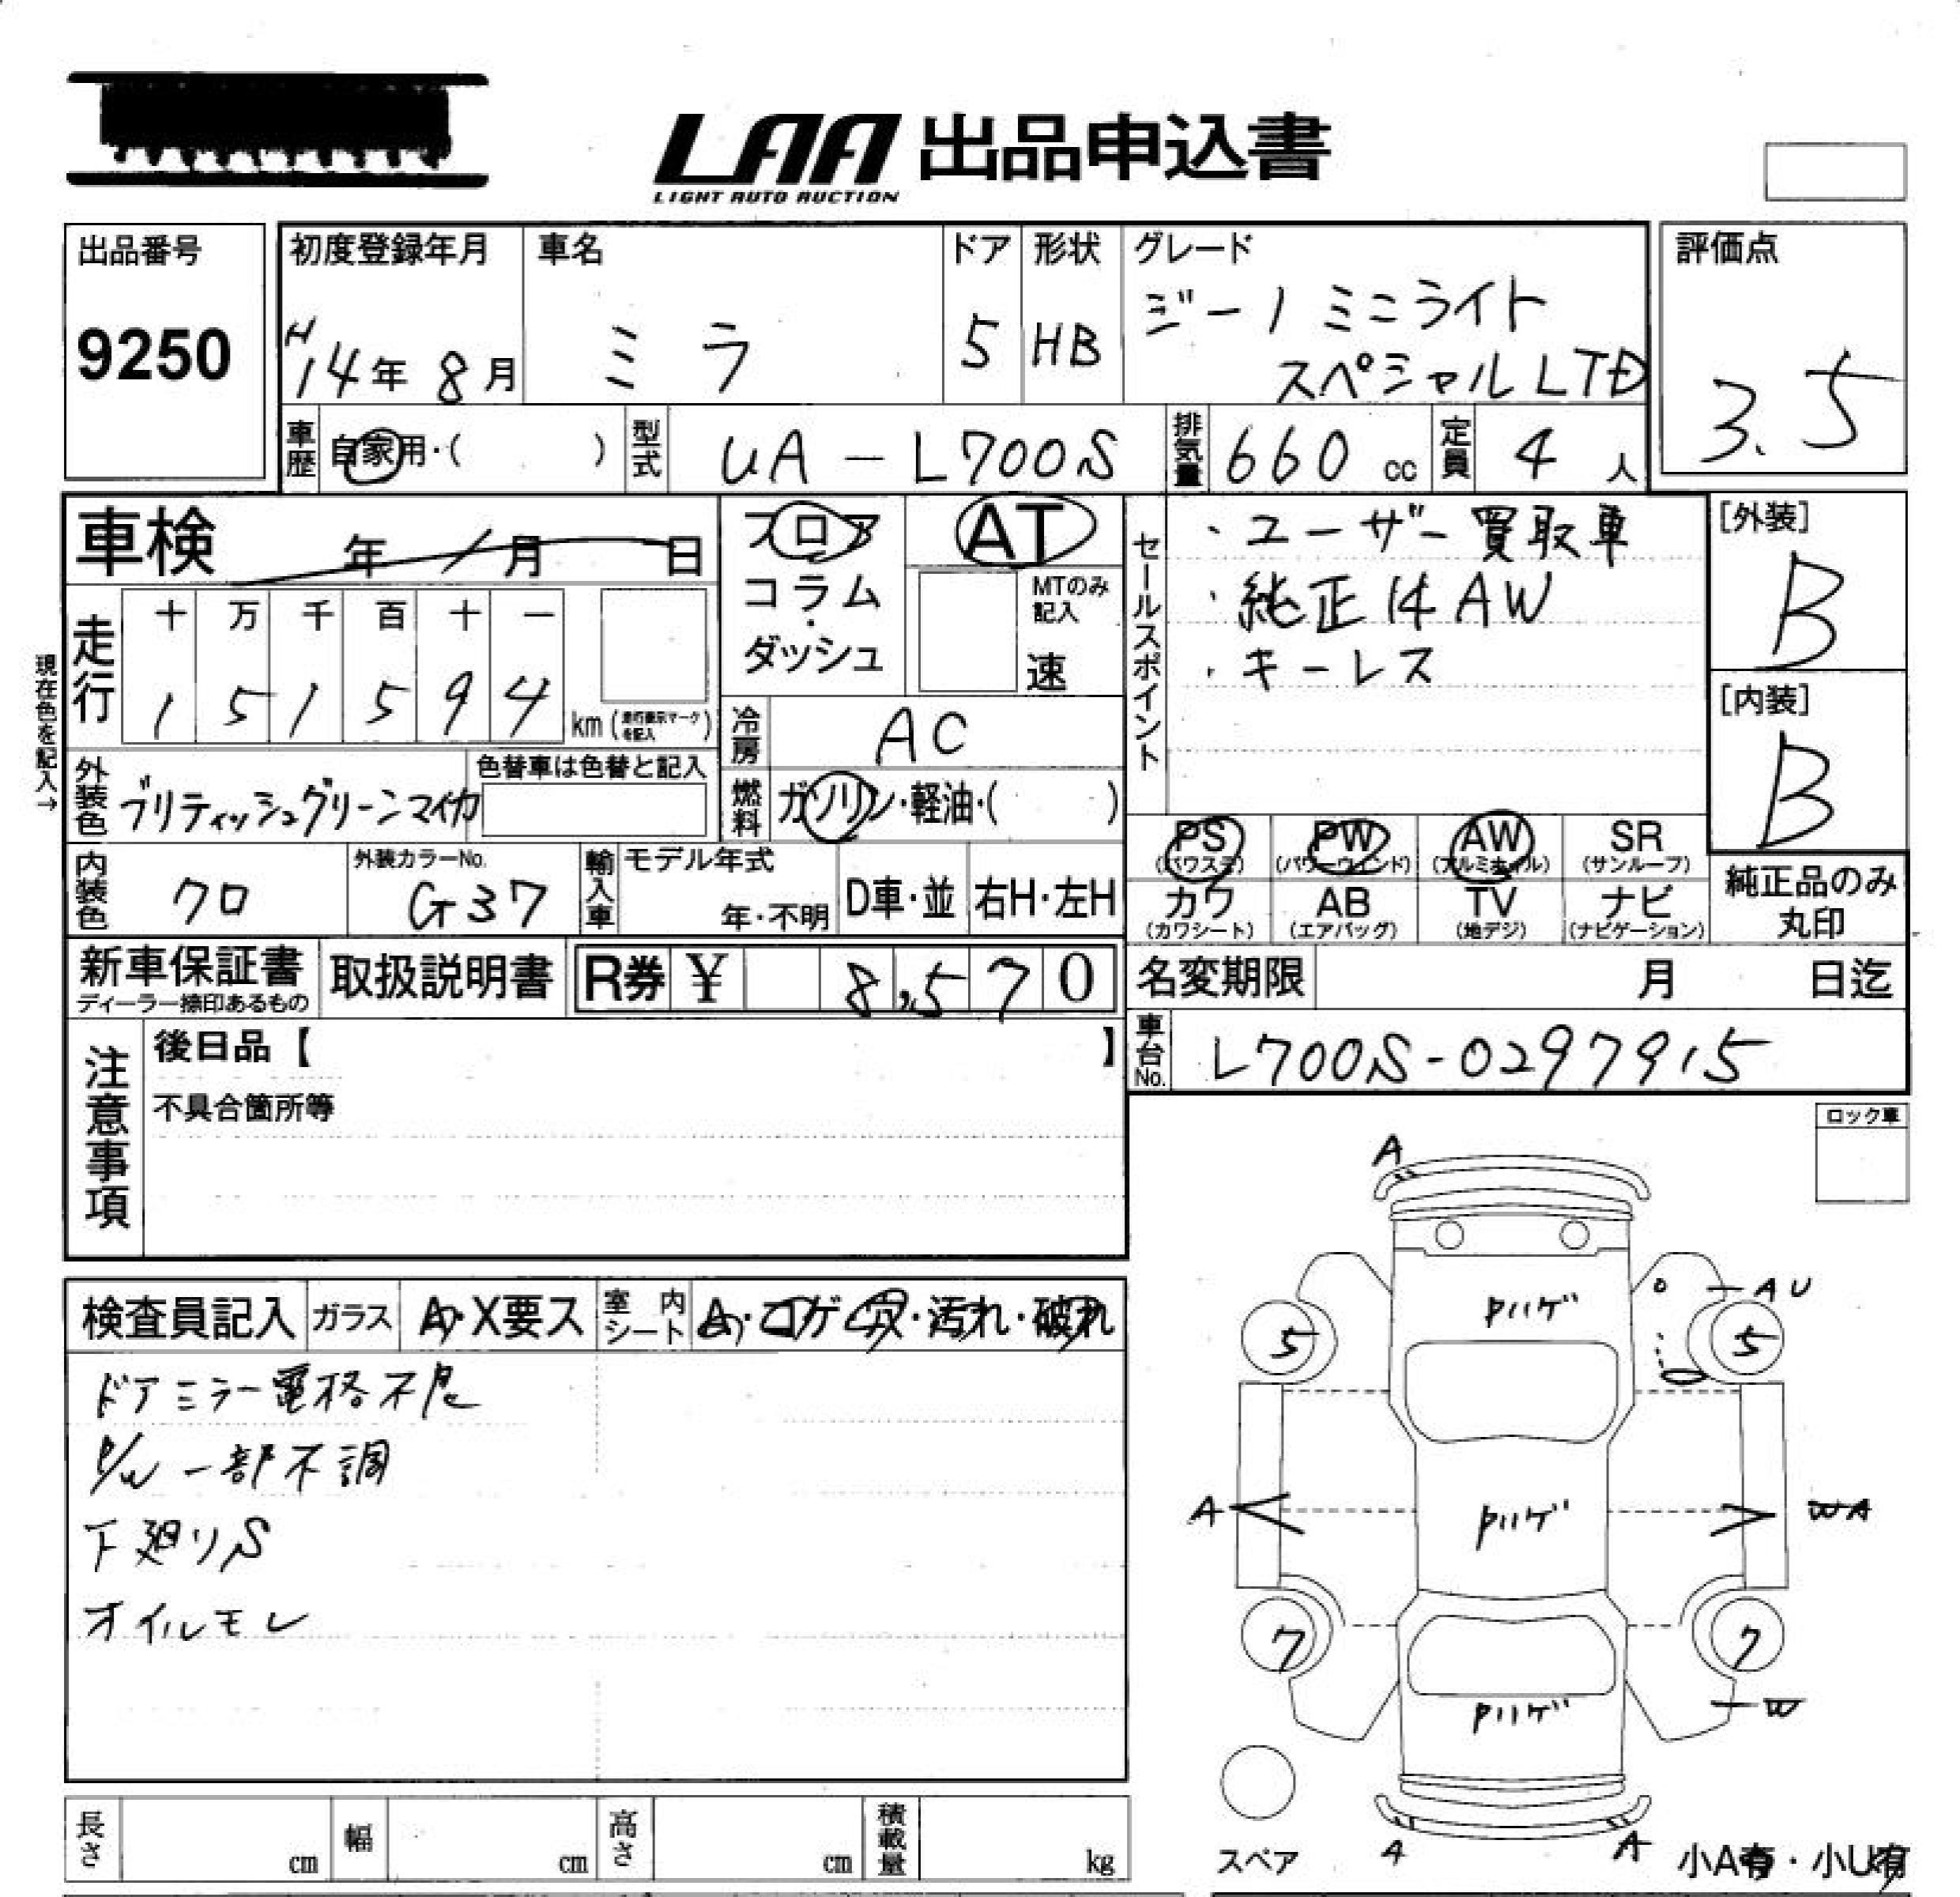 LAA 出品申込書
LIGHT AUTO AUCTION
出品番号
9250
初度登録年月
H14年 8月
車名
ミラ
ドア
5
形状
HB
グレード
ジーノ ミニライト
スペシャル LTD
評価点
3.5
車歴
自家用・( )
型式
UA-L700S
排気量
660 cc
定員
4 人
車検 年 月 日
フロア
コラム
・
ダッシュ
AT
MTのみ
記入
速
現在色を記入→
走行
十 万 千 百 十 一
1 5 1 5 9 4
km (走行表示マークを記入)
冷房
AC
外装色
ブリティッシュグリーンマイカ
色替車は色替と記入
燃料
ガソリン・軽油・( )
内装色
クロ
外装カラーNo.
G37
輸入車
モデル年式
年・不明
D車・並
右H・左H
セールスポイント
・ユーザー買取車
・純正14AW
・キーレス
[外装]
B
[内装]
B
PS
(パワステ)
PW
(パワーウィンド)
AW
(アルミホイル)
SR
(サンルーフ)
カワ
(カワシート)
AB
(エアバッグ)
TV
(地デジ)
ナビ
(ナビゲーション)
純正品のみ
丸印
新車保証書
ディーラー捺印あるもの
取扱説明書
R券 ¥ 8,570
名変期限 月 日迄
車台No.
L700S-0297915
注意事項
後日品【 】
不具合箇所等
ロック車
検査員記入
ガラス
A・X要ス
室内シート
A・コゲ穴・汚れ・破れ
ドアミラー電格不良
P/W 一部不調
下廻りS
オイルモレ
A
AU
ハゲ
5
5
A
ハゲ
WA
7
7
W
ハゲ
スペア
A
A
小A有・小U有
長さ cm
幅 cm
高さ cm
積載量 kg